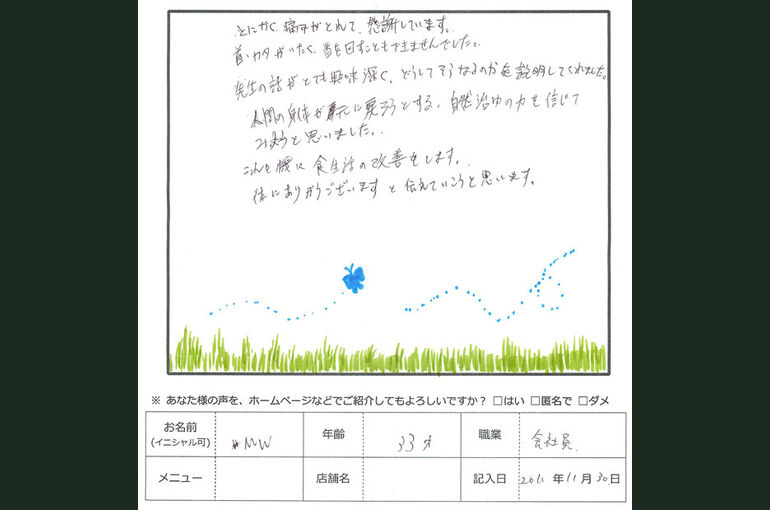 とにかく痛みがとれて、感謝しています。
首・カタがいたく、首を回すこともできませんでした。
先生の話がとても興味深く、どうしてそうなるのかを説明してくれました。
人間の身体が元に戻ろうとする、自然治ゆの力を信じて
みようと思いました。
これを機に食生活の改善をします。
体にありがうございますと伝えていこうと思います。
※ あなた様の声を、ホームページなどでご紹介してもよろしいですか？ □はい □匿名で □ダメ
お名前 (イニシャル可) MW 年齢 33才 職業 会社員
メニュー 店舗名 記入日 年 11月 30日